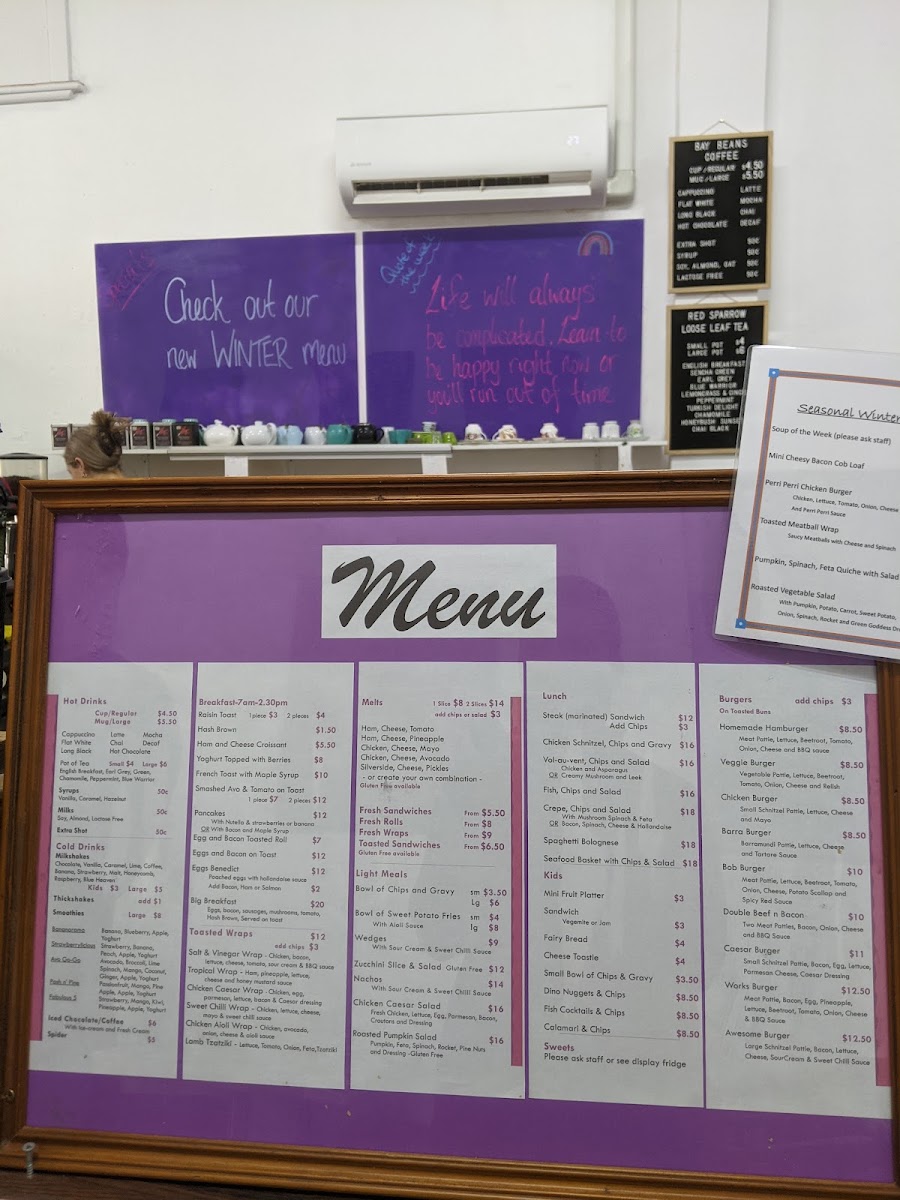 Check out our
new WINTER menu
Quote of
the week
Life will always
be complicated. Learn to
be happy right now or
you'll run out of time
BAY BEANS
COFFEE
CUP/REGULAR $4.50
MUG/LARGE $5.50
CAPPUCCINO LATTE
FLAT WHITE MOCHA
LONG BLACK CHAI
HOT CHOCOLATE DECAF
EXTRA SHOT 50¢
SYRUP 50¢
SOY, ALMOND, OAT 50¢
LACTOSE FREE 50¢
RED SPARROW
LOOSE LEAF TEA
SMALL POT $4
LARGE POT $6
ENGLISH BREAKFAST
SENCHA GREEN
EARL GREY
BLUE WARRIOR
LEMONGRASS & GING
PEPPERMINT
TURKISH DELIGHT
CHAMOMILE
HONEYBUSH SUNSE
CHAI BLACK
Seasonal Winter
Soup of the Week (please ask staff)
Mini Cheesy Bacon Cob Loaf
Perri Perri Chicken Burger
Chicken, Lettuce, Tomato, Onion, Cheese
And Perri Perri Sauce
Toasted Meatball Wrap
Saucy Meatballs with Cheese and Spinach
Pumpkin, Spinach, Feta Quiche with Salad
Roasted Vegetable Salad
With Pumpkin, Potato, Carrot, Sweet Potato,
Onion, Spinach, Rocket and Green Goddess Dre
Menu
Hot Drinks
Cup/Regular $4.50
Mug/Large $5.50
Cappuccino Latte Mocha
Flat White Chai Decaf
Long Black Hot Chocolate
Pot of Tea Small $4 Large $6
English Breakfast, Earl Grey, Green,
Chamomile, Peppermint, Blue Warrior
Syrups 50c
Vanilla, Caramel, Hazelnut
Milks 50c
Soy, Almond, Lactose Free
Extra Shot 50c
Cold Drinks
Milkshakes
Chocolate, Vanilla, Caramel, Lime, Coffee,
Banana, Strawberry, Malt, Honeycomb,
Raspberry, Blue Heaven
Kids $3 Large $5
Thickshakes add $1
Smoothies Large $8
Bananarama Banana, Blueberry, Apple,
Yoghurt
Strawberrylicious Strawberry, Banana,
Peach, Apple, Yoghurt
Avo Go-Go Avocado, Broccoli, Lime
Spinach, Mango, Coconut,
Ginger, Apple, Yoghurt
Pash n' Pine Passionfruit, Mango, Pine
Apple, Apple, Yoghurt
Fabulous 5 Strawberry, Mango, Kiwi,
Pineapple, Apple, Yoghurt
Iced Chocolate/Coffee $6
With Ice-cream and Fresh Cream
Spider $5
Breakfast-7am-2.30pm
Raisin Toast 1 piece $3 2 pieces $4
Hash Brown $1.50
Ham and Cheese Croissant $5.50
Yoghurt Topped with Berries $8
French Toast with Maple Syrup $10
Smashed Avo & Tomato on Toast
1 piece $7 2 pieces $12
Pancakes $12
With Nutella & strawberries or banana
OR With Bacon and Maple Syrup
Egg and Bacon Toasted Roll $7
Eggs and Bacon on Toast $12
Eggs Benedict $12
Poached eggs with hollandaise sauce
Add Bacon, Ham or Salmon $2
Big Breakfast $20
Eggs, bacon, sausages, mushrooms, tomato,
Hash Brown, Served on toast
Toasted Wraps $12
add chips $3
Salt & Vinegar Wrap - Chicken, bacon,
lettuce, cheese, tomato, sour cream & BBQ sauce
Tropical Wrap - Ham, pineapple, lettuce,
cheese and honey mustard sauce
Chicken Caesar Wrap - Chicken, egg,
parmesan, lettuce, bacon & Caesar dressing
Sweet Chilli Wrap - Chicken, lettuce, cheese,
mayo & sweet chilli sauce
Chicken Aioli Wrap - Chicken, avocado,
onion, cheese & aioli sauce
Lamb Tzatziki - Lettuce, Tomato, Onion, Feta, Tzatziki
Melts 1 Slice $8 2 Slices $14
add chips or salad $3
Ham, Cheese, Tomato
Ham, Cheese, Pineapple
Chicken, Cheese, Mayo
Chicken, Cheese, Avocado
Silverside, Cheese, Pickles
- or create your own combination -
Gluten Free available
Fresh Sandwiches From $5.50
Fresh Rolls From $8
Fresh Wraps From $9
Toasted Sandwiches From $6.50
Gluten Free available
Light Meals
Bowl of Chips and Gravy sm $3.50
Lg $6
Bowl of Sweet Potato Fries sm $4
With Aioli Sauce lg $8
Wedges $9
With Sour Cream & Sweet Chilli Sauce
Zucchini Slice & Salad Gluten Free $12
Nachos $14
With Sour Cream & Sweet Chilli Sauce
Chicken Caesar Salad $16
Fresh Chicken, Lettuce, Egg, Parmesan, Bacon,
Croutons and Dressing
Roasted Pumpkin Salad $16
Pumpkin, Feta, Spinach, Rocket, Pine Nuts
and Dressing -Gluten Free
Lunch
Steak (marinated) Sandwich $12
Add Chips $3
Chicken Schnitzel, Chips and Gravy $16
Val-au-vent, Chips and Salad $16
Chicken and Asparagus
OR Creamy Mushroom and Leek
Fish, Chips and Salad $16
Crepe, Chips and Salad $18
With Mushroom Spinach & Feta
OR Bacon, Spinach, Cheese & Hollandaise
Spaghetti Bolognese $18
Seafood Basket with Chips & Salad $18
Kids
Mini Fruit Platter $3
Sandwich
Vegemite or Jam $3
Fairy Bread $4
Cheese Toastie $4
Small Bowl of Chips & Gravy $3.50
Dino Nuggets & Chips $8.50
Fish Cocktails & Chips $8.50
Calamari & Chips $8.50
Sweets
Please ask staff or see display fridge
Burgers add chips $3
On Toasted Buns
Homemade Hamburger $8.50
Meat Pattie, Lettuce, Beetroot, Tomato,
Onion, Cheese and BBQ sauce
Veggie Burger $8.50
Vegetable Pattie, Lettuce, Beetroot,
Tomato, Onion, Cheese and Relish
Chicken Burger $8.50
Small Schnitzel Pattie, Lettuce, Cheese
and Mayo
Barra Burger $8.50
Barramundi Pattie, Lettuce, Cheese
and Tartare Sauce
Bob Burger $10
Meat Pattie, Lettuce, Beetroot, Tomato,
Onion, Cheese, Potato Scallop and
Spicy Red Sauce
Double Beef n Bacon $10
Two Meat Patties, Bacon, Onion, Cheese
and BBQ Sauce
Caesar Burger $11
Small Schnitzel Pattie, Bacon, Egg, Lettuce,
Parmesan Cheese, Caesar Dressing
Works Burger $12.50
Meat Pattie, Bacon, Egg, Pineapple,
Lettuce, Beetroot, Tomato, Onion, Cheese
& BBQ Sauce
Awesome Burger $12.50
Large Schnitzel Pattie, Bacon, Lettuce,
Cheese, SourCream & Sweet Chilli Sauce